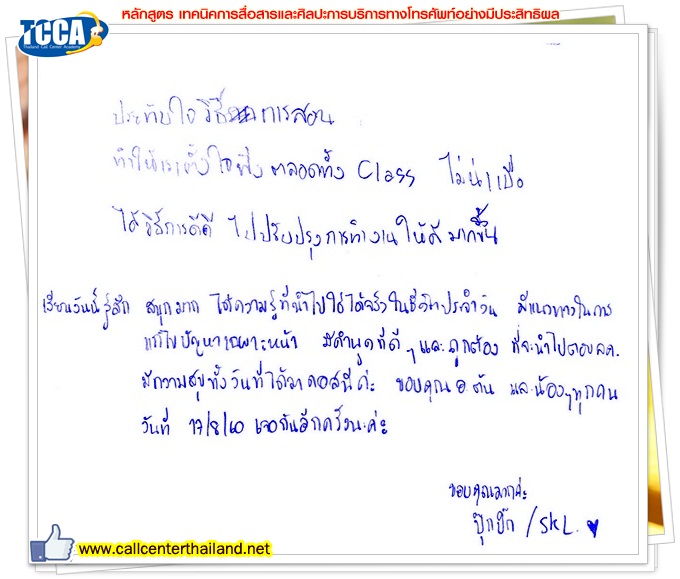 หลักสูตร เทคนิคการสื่อสารและศิลปะการบริการทางโทรศัพท์อย่างมีประสิทธิผล
TCCA
Thailand Call Center Academy
ประทับใจวิธีการสอน
ทำให้เราตั้งใจฟังตลอดทั้ง Class ไม่น่าเบื่อ
ได้วิธีการดีดี ไปปรับปรุงการทำงานให้ดีมากขึ้น
เรียนวันนี้รู้สึก สนุกมาก ได้ความรู้ที่นำไปใช้ได้จริงในชีวิตประจำวัน มีแนวทางในการ
แก้ไขปัญหาเฉพาะหน้า มีคำพูดที่ดีๆ และถูกต้อง ที่จะนำไปตอบลค.
มีความสุขทั้งวันที่ได้มาคอสนี้ค่ะ ขอบคุณ อ ต้น และน้องๆทุกคน
วันที่ 17/8/60 เจอกันอีกครั้งนะค่ะ
ขอบคุณมากค่ะ
ปุ๊กปิ๊ก / SKL.
www.callcenterthailand.net